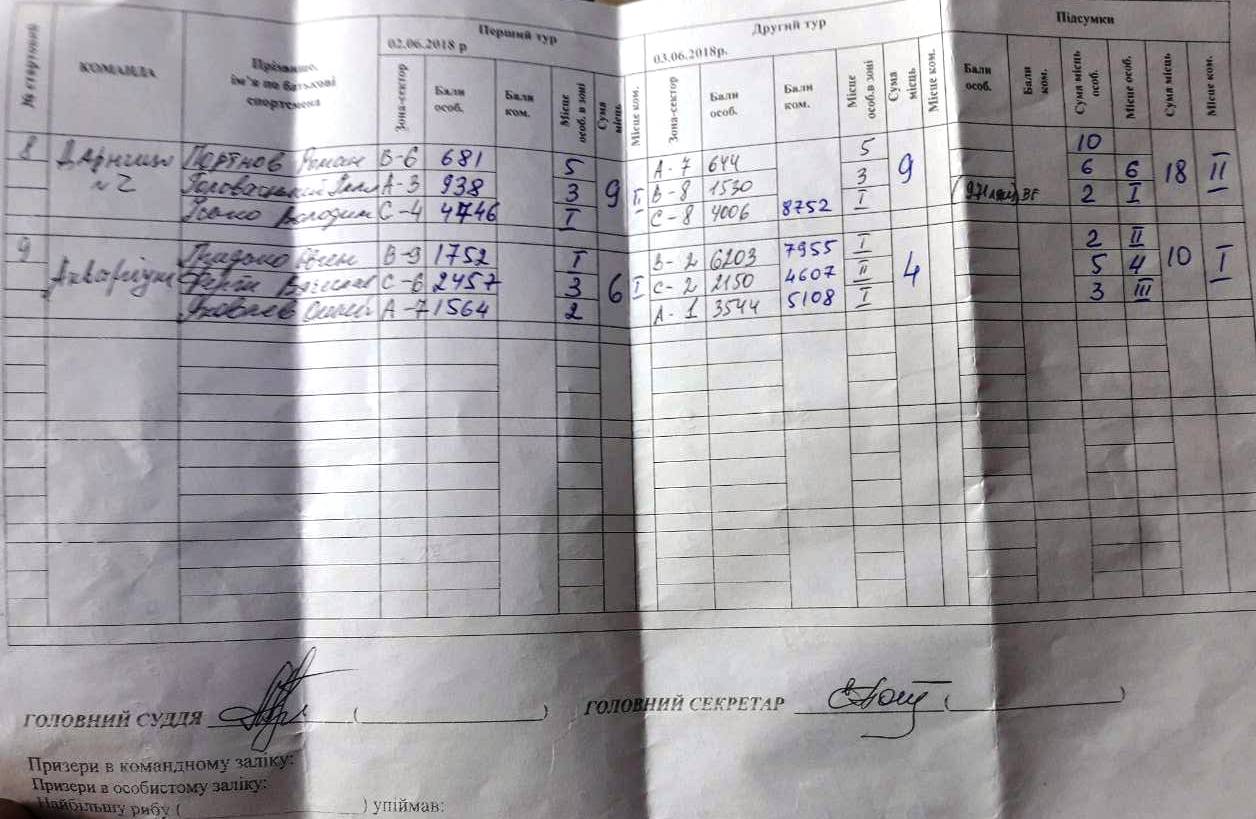 Перший тур Другий тур Підсумки
02.06.2018 р 03.06.2018р.
№ стартовий КОМАНДА Прізвище, ім’я по батькові спортсмена Зона-сектор Бали особ. Бали ком. Місце особ. в зоні Сума місць Місце ком. Зона-сектор Бали особ. Бали ком. Місце особ.в зоні Сума місць Місце ком. Бали особ. Бали ком. Сума місць особ. Місце особ. Сума місць Місце ком.
8 Дарниця Портнов Роман В-6 681 5 А-7 644 5 10
№2 А-3 938 3 9 II В-8 1530 3 9 6 6 18 II
С-4 4746 I С-8 4006 8752 I BF 2 I
9 В-9 1752 I В-2 6203 7955 I 2 II
С-6 2457 3 6 I С-2 2150 4607 II 4 5 4 10 I
А-7 1564 2 А-1 3544 5108 I 3 III
ГОЛОВНИЙ СУДДЯ ( ) ГОЛОВНИЙ СЕКРЕТАР ( )
Призери в командному заліку:
Призери в особистому заліку:
Найбільшу рибу ( ) упіймав: